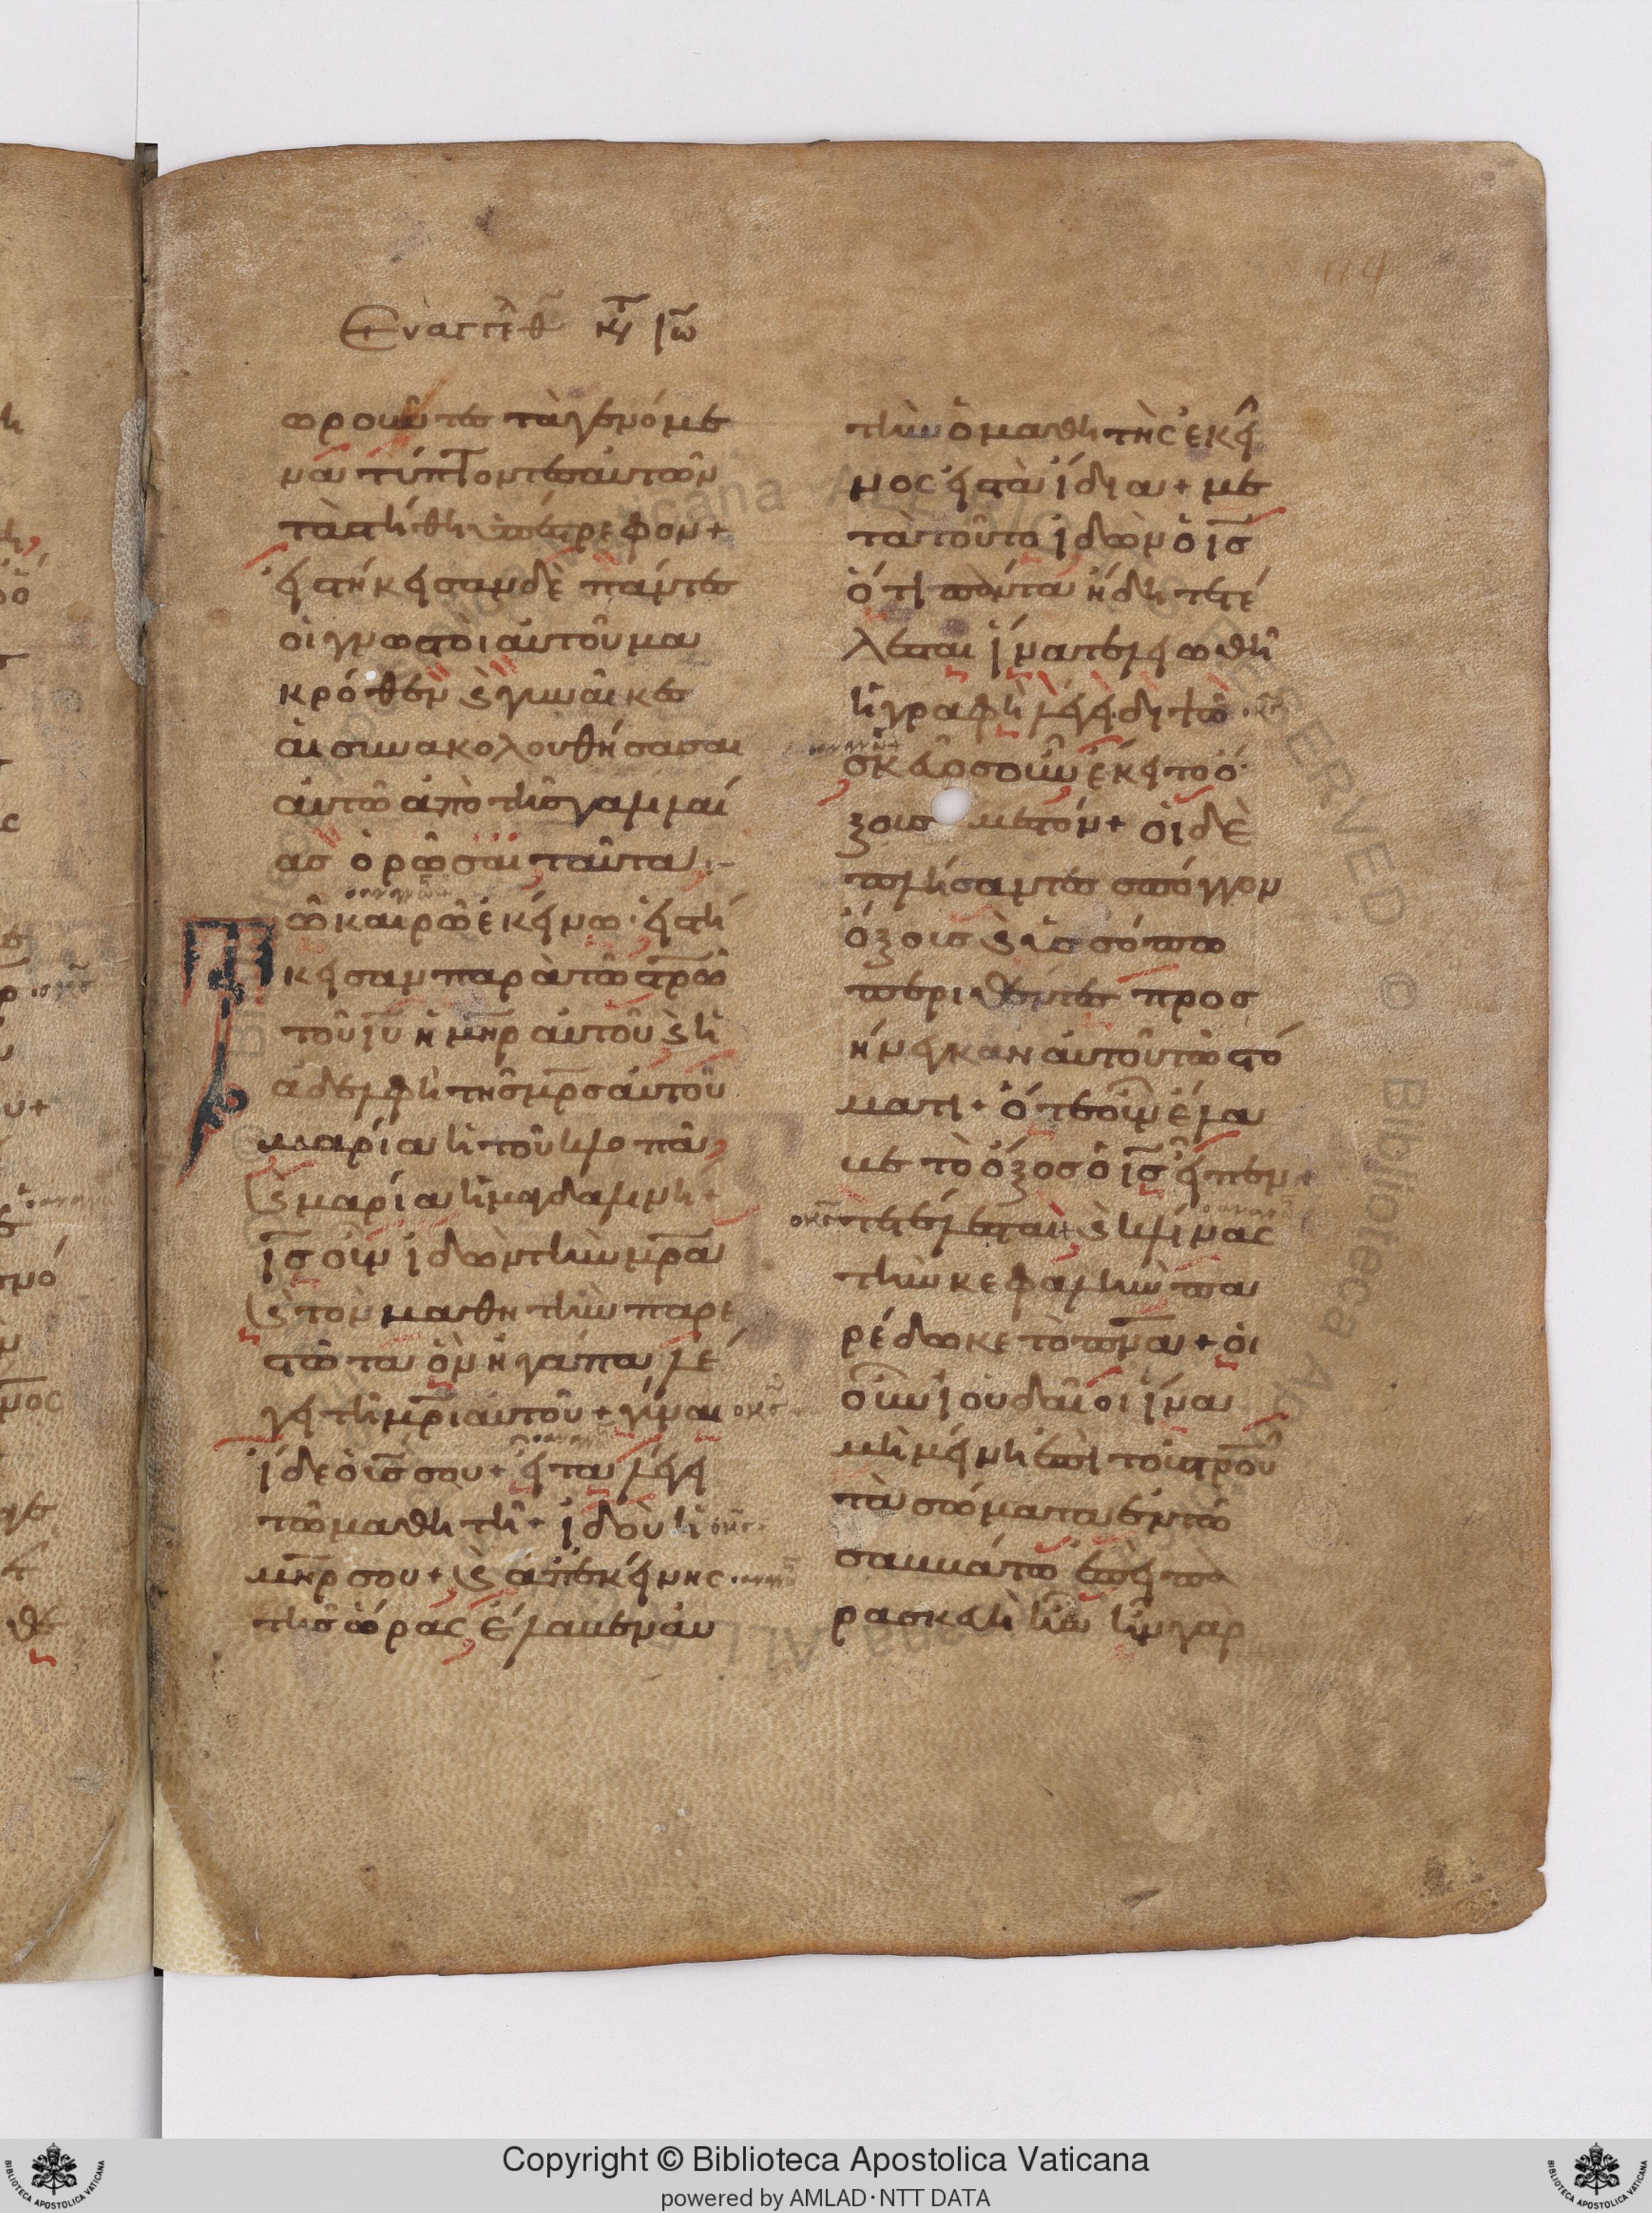 Εναγγε θ κτ ιω
ωρουντες τὰ γενόμε
να τύπτοντες αὐτῶν
τὰ στήθη ὑπέστρεφον+
εἱστήκεισαν δὲ πάντες
οἱ γνωστοὶ αὐτοῦ μα
κρόθεν ϗ γυναῖκες
αἱ συνακολουθήσασαι
αὐτῶ ἀπὸ τῆς γαλιλαί
ας ὁρῶσαι ταῦτα:-
Τῶ καιρῶ ἐκείνω· εἱστή
κεισαν παρὰ τῶ στρῶ
τοῦ ιυ ἡ μηρ αὐτοῦ ϗ ἡ
ἀδελφὴ τῆς μρς αὐτοῦ
μαρία ἡ τοῦ κλοπᾶ
ϗ μαρία ἡ μαγδαληνή+
ις οὖν ἰδὼν τὴν μρα
ϗ τὸν μαθητὴν παρε
στῶτα ὃν ἠγάπα λέ
γει τῆ μρι αὐτοῦ+ γύναι
ἴδε ὁ υς σου+ εἶτα λέγει
τῶ μαθητῆ+ ἰδοὺ ἡ
μηρ σου+ ϗ ἀπεκείνης
τῆς ὥρας ἔλαβεν αὐ
τὴν ὁ μαθητὴς ἐκεῖ
νος εἰς τὰ ἴδια+ με
τὰ τοῦτο ἰδὼν ὁ ις
ὅτι πάντα ἤδη τετέ
λεσται ἵνα τελειωθῆ
ἡ γραφὴ λέγει διψῶ
σκεῦος οὖν ἔκειτο ὄ
ξους μεστόν+ οἱ δὲ
πλήσαντες σπόγγον
ὄξους ϗ ὑσσώπω
περιθέντες προσ
ήνεγκαν αὐτοῦ τῶ στό
ματι+ ὅτε οὖν ἔλα
βε τὸ ὄξος ὁ ις εἶπεν+
τετέλεσται+ ϗ κλίνας
τὴν κεφαλὴν πα
ρέδωκε τὸ πνα+ οἱ
οὖν ἰουδαῖοι ἵνα
μὴ μείνη ἐπὶ τοῦ στρου
τὰ σώματα ἐν τῶ
σαββάτω ἐπεὶ πα
ρασκευὴ ἦν ἦν γὰρ
Copyright © Biblioteca Apostolica Vaticana
powered by AMLAD·NTT DATA